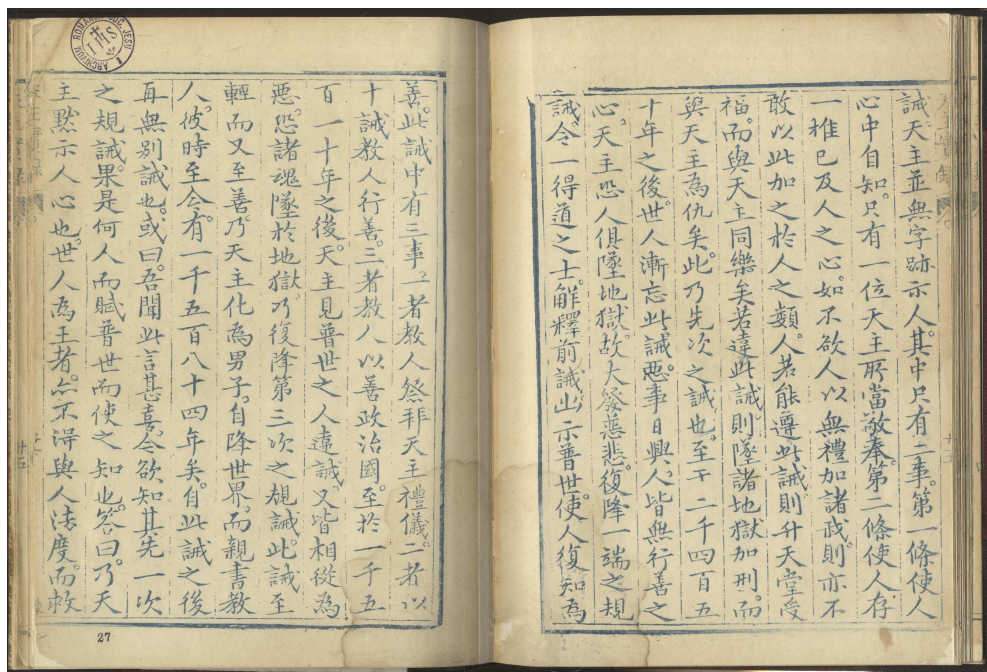 誡天主並無字跡示人。其中只有二事。第一條使人
心中自知只有一位天主所當敬奉。第二條使人存
一推已及人之心。如不欲人以無禮加諸我。則亦不
敢以此加之於人之類。人若能遵此誡則升天堂受
福。而與天主同樂矣若違此誡。則墜諸地獄加刑。而
與天主為仇矣。此乃先次之誡也。至于二千四百五
十年之後。世人漸忘此誡。惡事日興。人皆無行善之
心。天主恐人俱墜地獄。故大發慈悲。復降一端之規
誡。令一得道之士。觧釋前誡出示普世。使人復知為
善。此誡中有三事。一者教人祭拜天主禮儀。二者以
十誡教人行善。三者教人以善政治國。至於一千五
百一十年之後。天主見普世之人違誡。又皆相從為
惡。恐諸魂墜於地獄。乃復降第三次之規誡。此誡至
輕而又至善。乃天主化為男子。自降世界。而親書教
人。彼時至今。有一千五百八十四年矣。自此誡之後
再無別誡也。或曰。吾聞此言甚喜。今欲知其先一次
之規誡。果是何人而賦普世而使之知也。答曰。乃天
主默示人心也。世人為王者。亦不淂與人法度。而敕
27
ARCHIVUM ROMANUM SOC. JESU
IHS